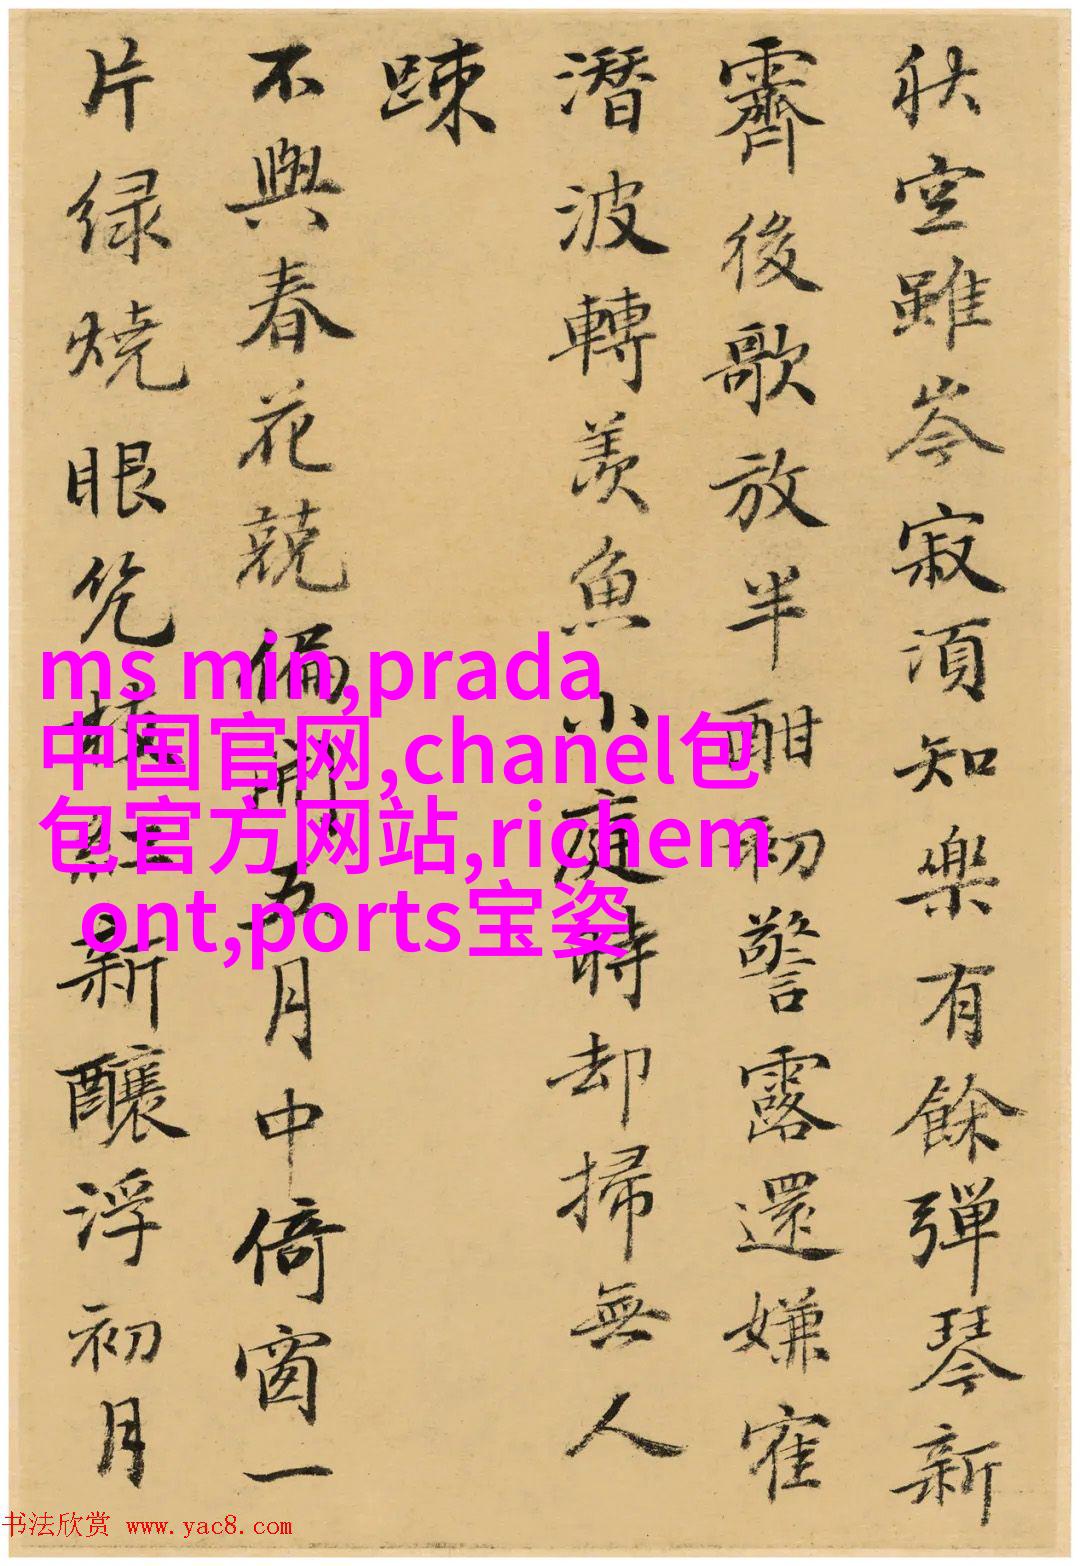 秋空雖岑寂湏知樂有餘彈琴新
霽後歌放半酣初警露還嫌寉
潛波轉羨魚小庭時却掃無人
踈
不與春花競偏開五月中倚窗一
片緑燒眼枝紅新釀浮初月
ms min,prada
中国官网,chanel包
包官方网站,richem
ont,ports宝姿
书法欣赏 www.yac8.com